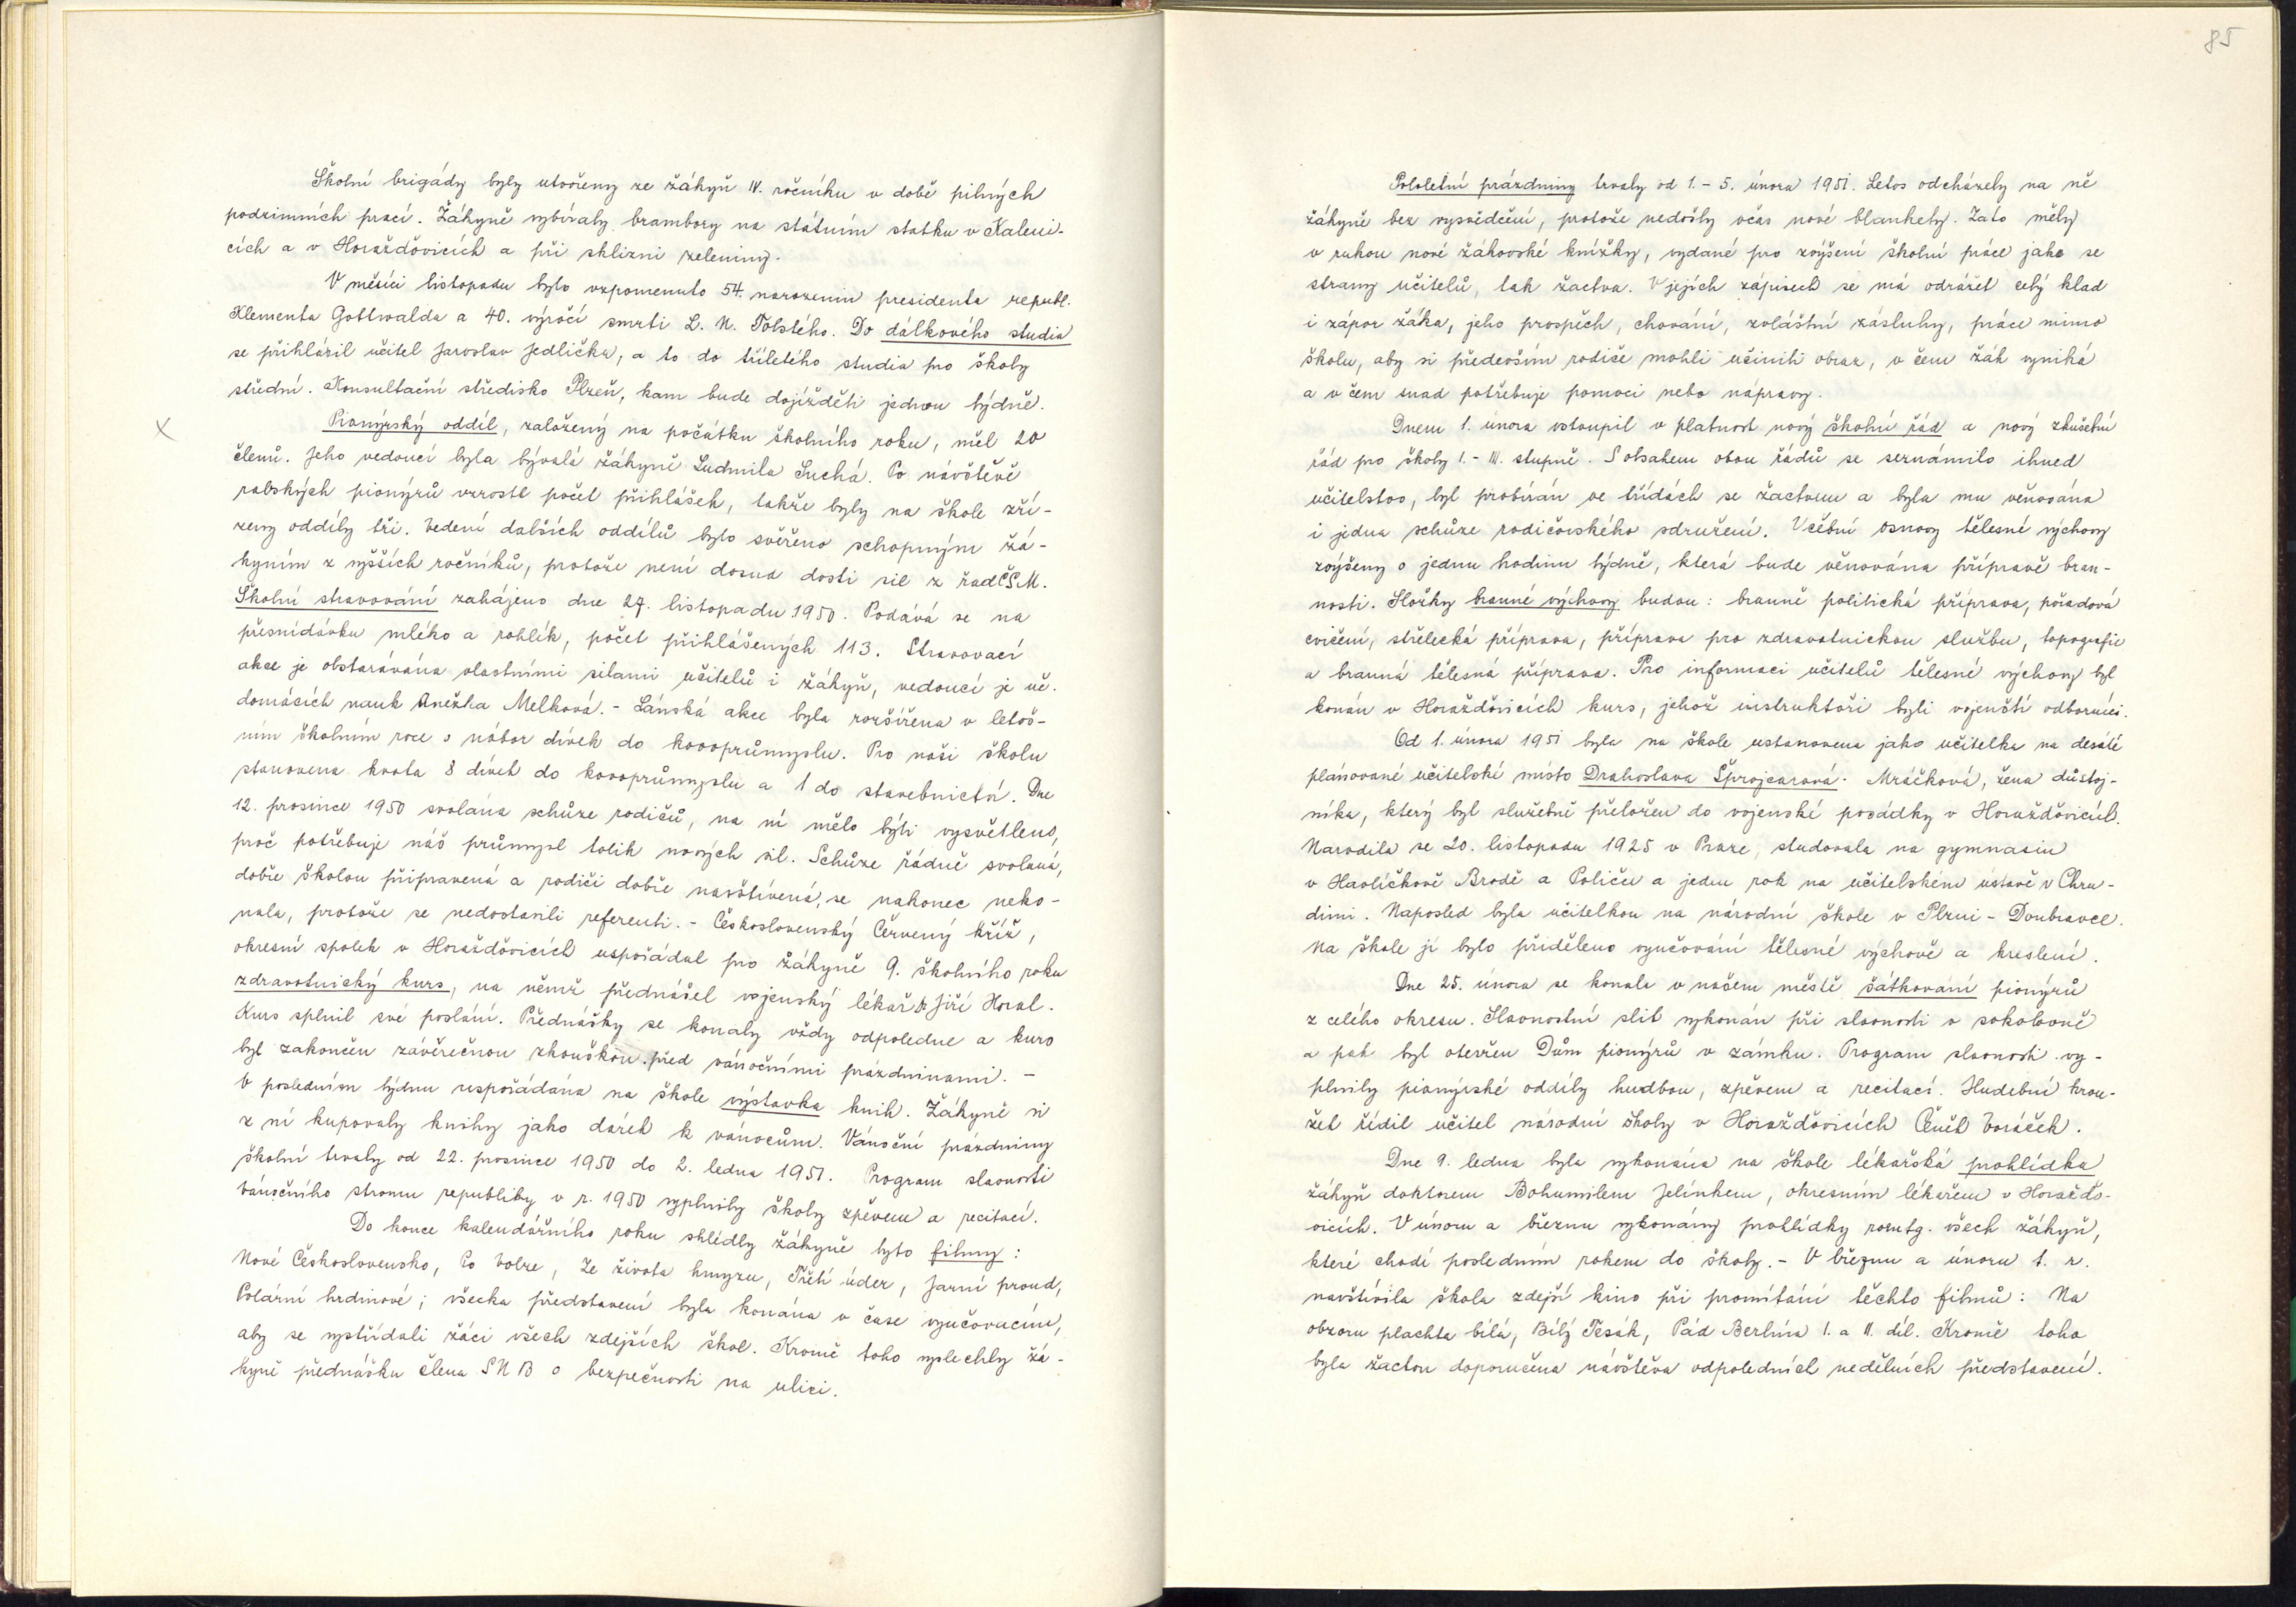 Školní brigády byly utvořeny ze žákyň IV. ročníku v době pilných
podzimních prací. Žákyně vybíraly brambory na státním statku v Kaleni-
cích a v Horažďovicích a při sklizni zeleniny.
V měsíci listopadu bylo vzpomenuto 54. narozenin presidenta republ.
Klementa Gottwalda a 40. výročí smrti L. N. Tolstého. Do dálkového studia
se přihlásil učitel Jaroslav Jedlička, a to do tříletého studia pro školy
střední. Konsultační středisko Plzeň, kam bude dojížděti jednou týdně.
x Pionýrský oddíl, založený na počátku školního roku, měl 20
členů. Jeho vedoucí byla bývalá žákyně Ludmila Suchá. Po návštěvě
rabských pionýrů vzrostl počet přihlášek, takže byly na škole zří-
zeny oddíly tři. Vedení dalších oddílů bylo svěřeno schopným žá-
kyním z vyšších ročníků, protože není dosud dosti sil z řad ČSM.
Školní stravování zahájeno dne 27. listopadu 1950. Podává se na
přesnídávku mléko a rohlík, počet přihlášených 113. Stravovací
akce je obstarávána vlastními silami učitelů i žákyň, vedoucí je uč.
domácích nauk Anežka Melková. - Lánská akce byla rozšířena v letoš-
ním školním roce o nábor dívek do kovoprůmyslu. Pro naši školu
stanovena kvota 8 dívek do kovoprůmyslu a 1 do stavebnictví. Dne
12. prosince 1950 svolána schůze rodičů, na ní mělo býti vysvětleno,
proč potřebuje náš průmysl tolik nových sil. Schůze řádně svolaná,
dobře školou připravená a rodiči dobře navštívená, se nakonec neko-
nala, protože se nedostavili referenti. - Československý Červený kříž,
okresní spolek v Horažďovicích uspořádal pro žákyně 9. školního roku
zdravotnický kurs, na němž přednášel vojenský lékař Dr Jiří Horal.
Kurs splnil své poslání. Přednášky se konaly vždy odpoledne a kurs
byl zakončen závěrečnou zkouškou před vánočními prazdninami. -
V posledním týdnu uspořádána na škole výstavka knih. Žákyně si
z ní kupovaly knihy jako dárek k vánocům. Vánoční prázdniny
školní trvaly od 22. prosince 1950 do 2. ledna 1951. Program slavnosti
Vánočního stromu republiky v r. 1950 vyplnily školy zpěvem a recitací.
Do konce kalendářního roku shlédly žákyně tyto filmy:
Nové Československo, Po Volze, Ze života hmyzu, Třetí úder, Jarní proud,
Polární hrdinové; všecka představení byla konána v čase vyučovacím,
aby se vystřídali žáci všech zdejších škol. Kromě toho vyslechly žá-
kyně přednášku člena SNB o bezpečnosti na ulici.
85
Pololetní prázdniny trvaly od 1. - 5. února 1951. Letos odcházely na ně
žákyně bez vysvědčení, protože nedošly včas nové blankety. Zato měly
v rukou nové žákovské knížky, vydané pro zvýšení školní práce jako se
strany učitelů, tak žactva. V jejích zápisech se má odrážet celý klad
i zápor žáka, jeho prospěch, chování, zvláštní zásluhy, práce mimo
školu, aby si především rodiče mohli učiniti obraz, v čem žák vyniká
a v čem snad potřebuje pomoci nebo nápravy.
Dnem 1. února vstoupil v platnost nový školní řád a nový zkušební
řád pro školy I. - III. stupně. S obsahem obou řádů se seznámilo ihned
učitelstvo, byl probírán ve třídách se žactvem a byla mu věnována
i jedna schůze rodičovského sdružení. Učební osnovy tělesné výchovy
zvýšeny o jednu hodinu týdně, která bude věnována přípravě bran-
nosti. Složky branné výchovy budou: branně politická příprava, pořadová
cvičení, střelecká příprava, příprava pro zdravotnickou službu, topografie
a branná tělesná příprava. Pro informaci učitelů tělesné výchovy byl
konán v Horažďovicích kurs, jehož instruktoři byli vojenští odborníci.
Od 1. února 1951 byla na škole ustanovena jako učitelka na desáté
plánované učitelské místo Drahoslava Šprojcarová - Mráčková, žena důstoj-
níka, který byl služebně přeložen do vojenské posádky v Horažďovicích.
Narodila se 20. listopadu 1925 v Praze, studovala na gymnasiu
v Havlíčkově Brodě a Poličce a jeden rok na učitelském ústavě v Chru-
dimi. Naposled byla učitelkou na národní škole v Plzni - Doubravce.
Na škole jí bylo přiděleno vyučování tělesné výchově a kreslení.
Dne 25. února se konala v našem městě šátkování pionýrů
z celého okresu. Slavnostní slib vykonán při slavnosti v sokolovně
a pak byl otevřen Dům pionýrů v zámku. Program slavnosti vy-
plnily pionýrské oddíly hudbou, zpěvem a recitací. Hudební krou-
žek řídil učitel národní školy v Horažďovicích Čeněk Voráček.
Dne 9. ledna byla vykonána na škole lékařská prohlídka
žákyň doktorem Bohumilem Jelínkem, okresním lékařem v Horažďo-
vicích. V únoru a březnu vykonány prohlídky rentg. všech žákyň,
které chodí posledním rokem do školy. - V březnu a únoru t. r.
navštívila škola zdejší kino při promítání těchto filmů: Na
obzoru plachta bílá, Bílý Tesák, Pád Berlína I. a II. díl. Kromě toho
byla žactvu doporučena návštěva odpoledních nedělních představení.